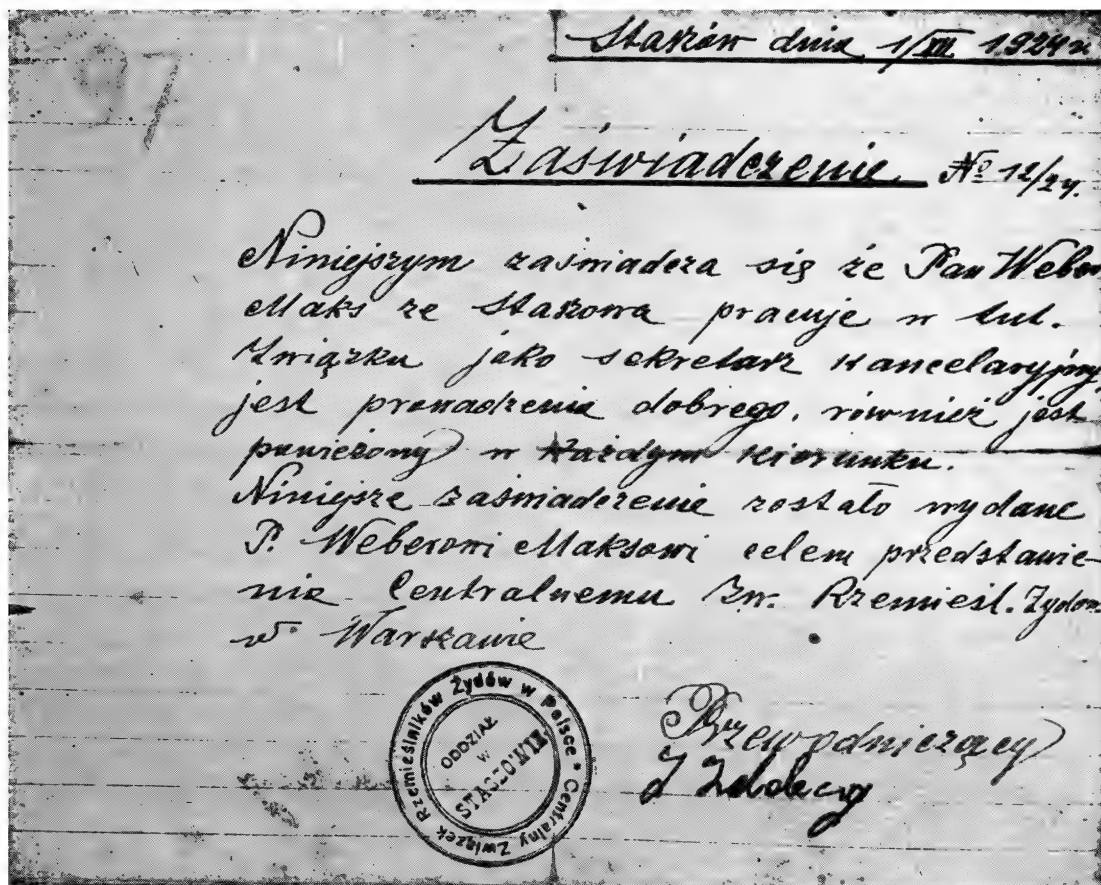 Staszów dnia 1/III 1924 r
Zaświadczenie № 12/24.
Niniejszym zaświadcza się że Pan Weber
Maks ze Staszowa pracuje w tut.
Związku jako sekretarz kancelaryjny,
jest prowadzenia dobrego, również jest
poważony w każdym kierunku.
Niniejsze zaświadczenie zostało wydane
P. Weberowi Maksowi celem przedstawie-
nia Centralnemu Zw. Rzemieśl. Żydów
w Warszawie
Centralny Związek Rzemieślników Żydów w Polsce *
ODDZIAŁ
w
STASZOWIE
Przewodniczący